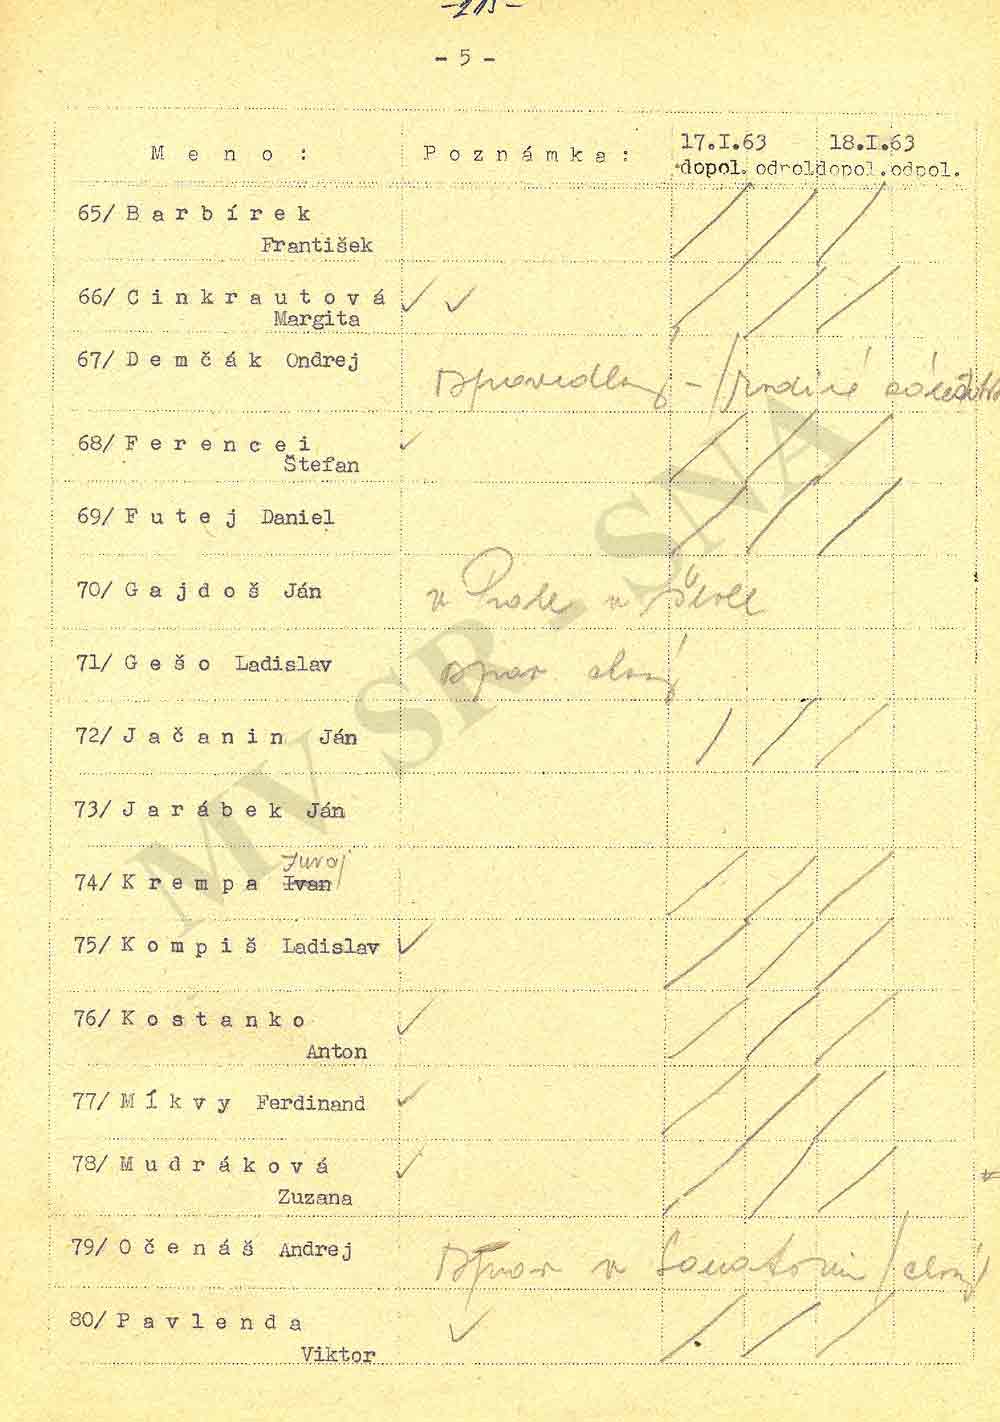 -215-
- 5 -
M e n o :   P o z n á m k a :   17.I.63   18.I.63
dopol. odpol. dopol. odpol.
65/ B a r b í r e k
František
66/ C i n k r a u t o v á
Margita
67/ D e m č á k  Ondrej
68/ F e r e n c e i
Štefan
69/ F u t e j  Daniel
70/ G a j d o š  Ján   v Prahe v škole
71/ G e š o  Ladislav   ospr. chorý
72/ J a č a n i n  Ján
73/ J a r á b e k  Ján
Juraj
74/ K r e m p a  Ivan
75/ K o m p i š  Ladislav
76/ K o s t a n k o
Anton
77/ M í k v y  Ferdinand
78/ M u d r á k o v á
Zuzana
79/ O č e n á š  Andrej   ospr. v Sanatoriu / chorý /
80/ P a v l e n d a
Viktor
MV SR - SNA